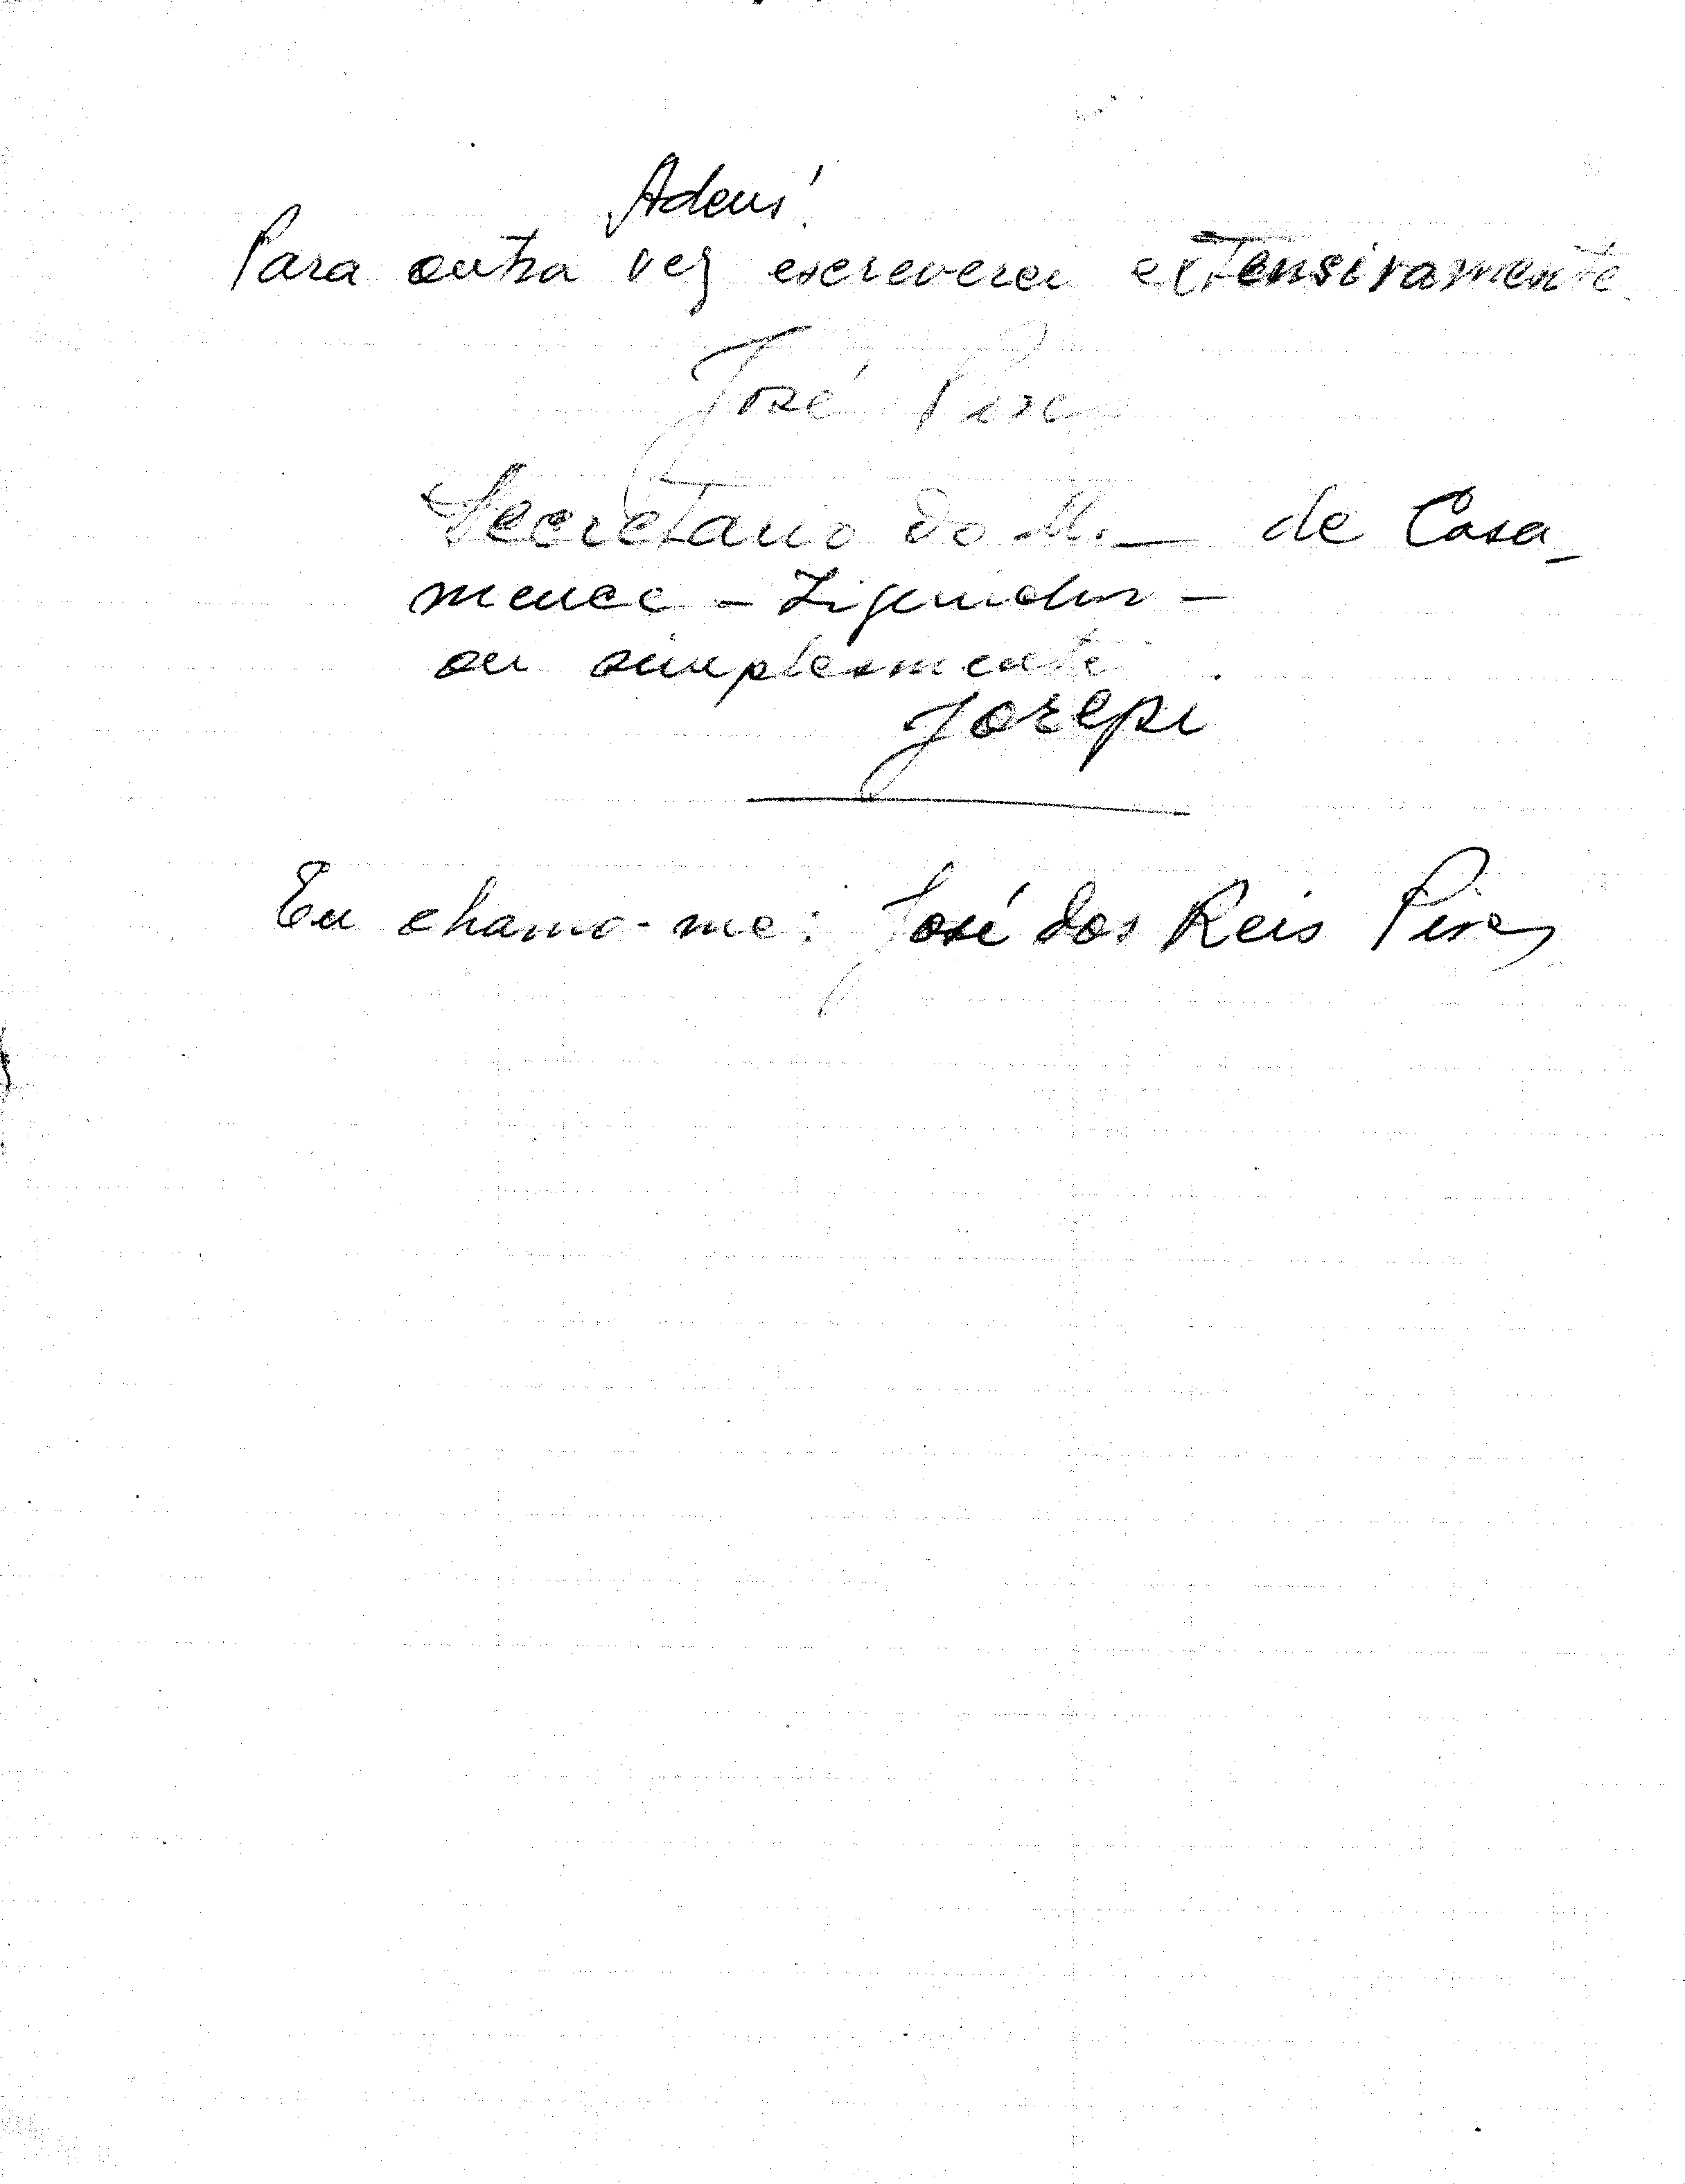 Adeus!
Para outra vez escreverei extensivamente.
José Pires
Secretario do M. — de Casa-
mance – Ziguinchor –
ou simplesmente
Jozepi
Eu chamo-me: José dos Reis Pires